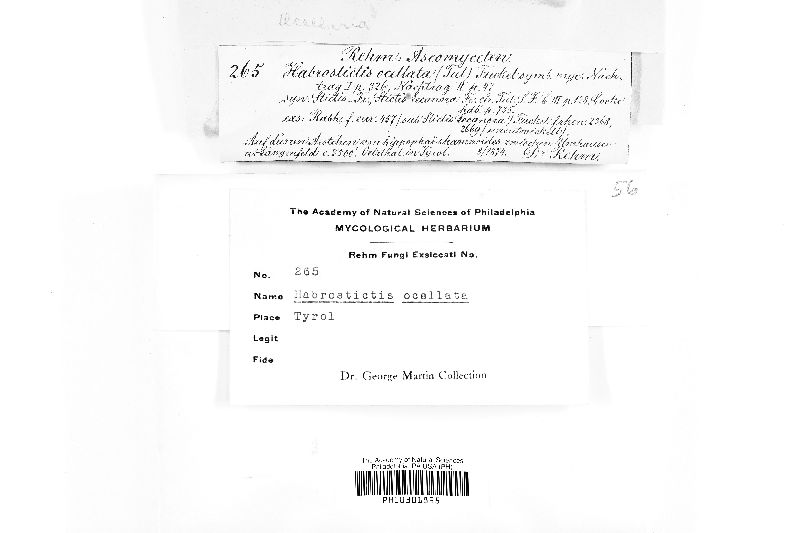 Rehm: Ascomyceten.
265 Habrostictis ocellata (Tul.) Fuckel symb. myc. Nach-
trag I p. 326, Nachtrag II p. 47
syn: Stictis Fr., Stictis Lecanora
hdb. p. 735.
exs: Rabh. f. eur. 457 (sub Stictis Lecanora) Fuckel f. rhen. 2568,
2669 (unentwickelt).
Auf dürren Aestchen von Hippophaë rhamnoides zwischen Umhausen
u. Längenfeld im Tyrol. 8/1874. Dr Rehm.
56
The Academy of Natural Sciences of Philadelphia
MYCOLOGICAL HERBARIUM
Rehm Fungi Exsiccati No.
No. 265
Name Habrostictis ocellata
Place Tyrol
Legit
Fide
Dr. George Martin Collection
The Academy of Natural Sciences
Philadelphia, PA USA (PH)